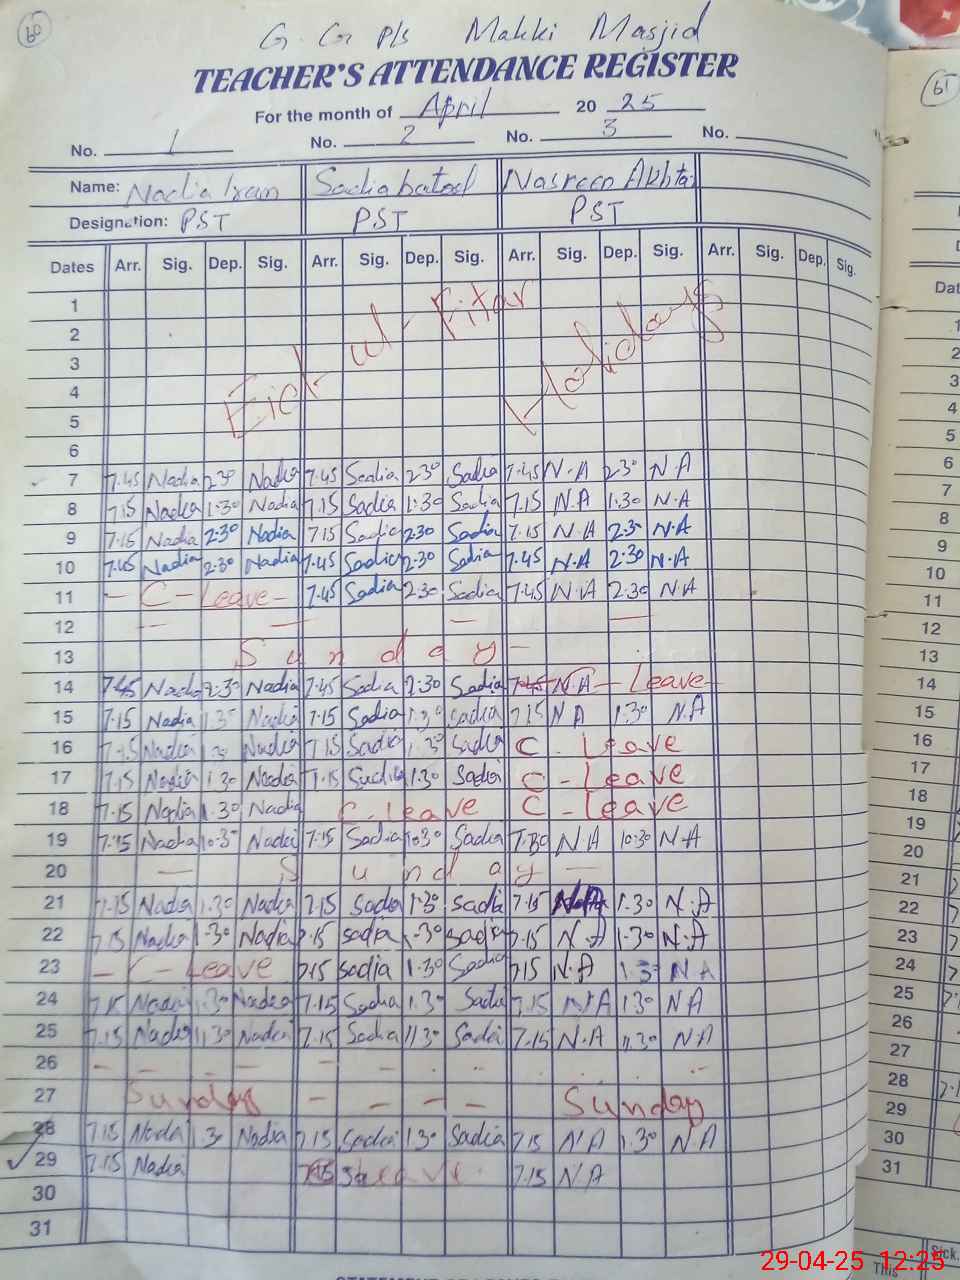 60
G. G P/S Makki Masjid
TEACHER'S ATTENDANCE REGISTER
For the month of April 20 25
No. 1 No. 2 No. 3 No.
Name: Nadia Sadia batool Nasreen Akhtar
Designation: PST PST PST
Dates Arr. Sig. Dep. Sig. Arr. Sig. Dep. Sig. Arr. Sig. Dep. Sig. Arr. Sig. Dep. Sig.
1
2
3
4
5
6
Eid-ul-Fitar Holidays
7 7.45 Nadia 2.30 Nadia 7.45 Sadia 2.30 Sadia 7.45 N.A 2.30 N.A
8 7.15 Nadia 1.30 Nadia 7.15 Sadia 1.30 Sadia 7.15 N.A 1.30 N.A
9 7.15 Nadia 2.30 Nadia 7.15 Sadia 2.30 Sadia 7.15 N.A 2.3 N.A
10 7.45 Nadia 2.30 Nadia 7.45 Sadia 2.30 Sadia 7.45 N.A 2.30 N.A
11 - C - Leave - 7.45 Sadia 2.30 Sadia 7.45 N.A 2.30 N.A
12 — — — —
13 Sunday -
14 7.45 Nadia 2.30 Nadia 7.45 Sadia 2.30 Sadia N.A - Leave -
15 7.15 Nadia 1.30 Nadia 7.15 Sadia 1.30 Sadia 7.15 N.A 1.30 N.A
16 7.15 Nadia 1.30 Nadia 7.15 Sadia 1.30 Sadia C - Leave
17 7.15 Nadia 1.30 Nadia 7.15 Sadia 1.30 Sadia C - Leave
18 7.15 Nadia 1.30 Nadia C - Leave C - Leave
19 Nadia 10.30 Nadia 7.15 Sadia 10.30 Sadia 7.30 N.A 10.30 N.A
20 — Sunday —
21 7.15 Nadia 1.30 Nadia 7.15 Sadia 1.30 Sadia 7.15 N.A 1.30 N.A
22 7.15 Nadia 1.30 Nadia 7.15 Sadia 1.30 Sadia 7.15 N.A 1.30 N.A
23 - C - Leave 7.15 Sadia 1.30 Sadia 7.15 N.A 1.3 N A
24 7.15 Nadia 1.30 Nadia 7.15 Sadia 1.30 Sadia 7.15 N.A 1.30 N A
25 7.15 Nadia 11.30 Nadia 7.15 Sadia 11.30 Sadia 7.15 N.A 11.30 N A
26 - - - - -
27 Sunday - - - - Sunday
28 7.15 Nadia 1.30 Nadia 7.15 Sadia 1.30 Sadia 7.15 N A 1.30 N A
29 7.15 Nadia Leave 7.15 N A
30
31
61
Dat
1
2
3
4
5
6
7
8
9
10
11
12
13
14
15
16
17
18
19
20
21
22
23
24
25
26
27
28
29
30
31
This
Sick.
29-04-25 12:25